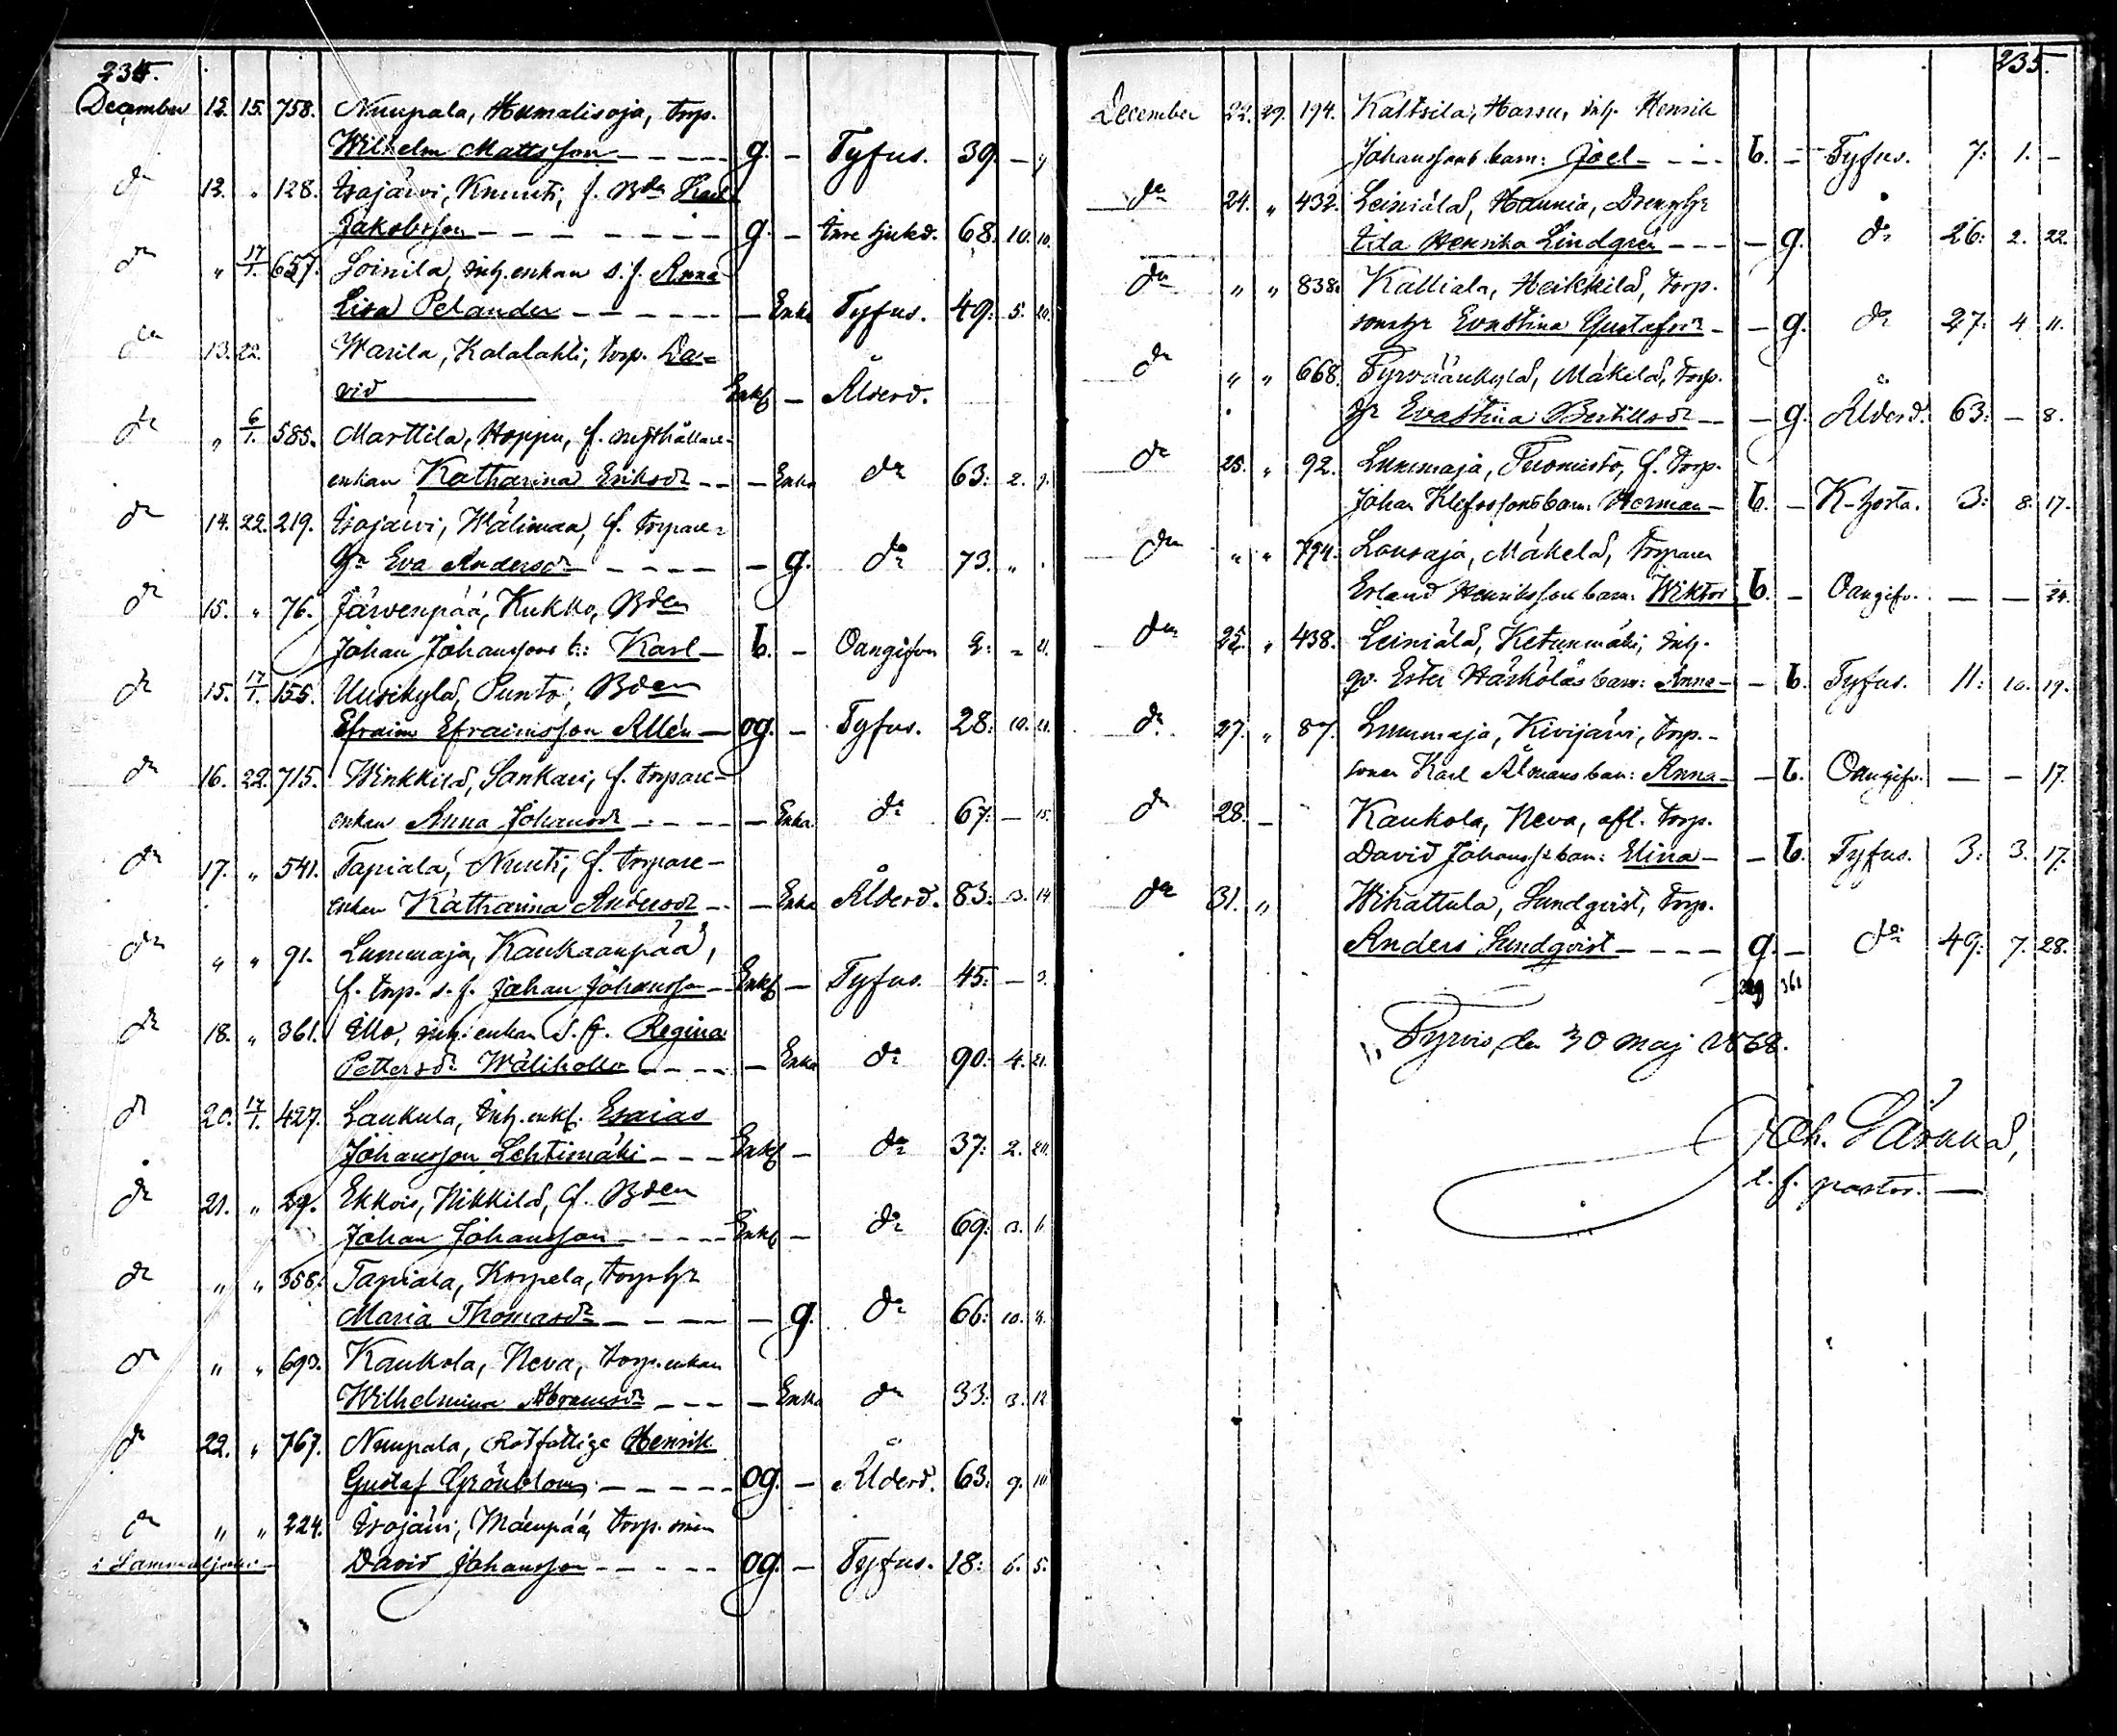 234.
December 12. 15. 758. Nuupala, Humalisoja, torp.
Wilhelm Mattsson - - - - g. - Tyfus. 39. -
do 12. " 128. Isojärvi, Knuuti, f. Bdn
Jakobsson - - - - - - g. - 68. 10. 10.
do " 17/1. 657. Soinila, inh. enkan s.f. Anna
Lisa Pelander - - - - - - Enka Tyfus. 49. 5. 20.
do 13. 22. Warila, Kalalahti, torp. Da=
vid Enkl - Ålderd.
do " 6/1. 585. Marttila, Hoppu, f.
enkan Katharina Eriksdr - - - Enka do 63. 2. 9.
do 14. 22. 219. Isojärvi, Wälimaa, f. torpare=
hr Eva Andersdr - - - - - g. do 73. " "
do 15. " 76. Järvenpää, Kukko, Bden
Johan Johanssons b: Karl - b. - Oangifven 2: - 21.
do 15. 17/1. 155. Uusikylä, Punto, Bden
Efraim Efraimsson Allén - og. - Tyfus. 28: 10. 21.
do 16. 22. 715. Winkkilä, Sankari, f. torpare-
enkan Anna Johansdr - - - - Enka. do 67: - 15.
do 17. " 541. Tapiala, Nuuti, f. torpare-
enkan Katharina Andersdr - - Enka Ålderd. 83: 3. 14.
do " " 91. Lummaja, Kaukaanpää,
f. torp. s. f. Johan Johansson - Enkl - Tyfus. 45: - 3.
do 18. " 361. Illo, inh. enkan s. f. Regina
Pettersdr Wälihollo - - - - - Enka do 90: 4. 21.
do 20. 17/1. 427. Laukula, Inh. enkl. Esaias
Johansson Lehtimäki - - - Enkl - do 37: 2. 20.
do 21. " 29. Ekkois, Nikkilä, f. Bden
Johan Johansson - - - - - Enkl - do 69: 3. 6.
do " " 358. Tapiala, Korpela, torp.hr
Maria Thomasdr - - - - - g. do 66: 10. 8.
do " " 693. Kaukola, Neva, torp. enkan
Wilhelmina Abramsdr - - - - Enka do 33: 3. 12.
do 22. " 767. Nuupala, Rotfattige Henrik
Gustaf Grönblom - - - - - og. - Ålderd. 63: 9. 10.
do " " 224. Isojärvi, Mäenpää, torp. son
i Sammaljoki David Johansson - - - - - og. - Tyfus. 18: 6. 5.
235.
December 22. 29. 194. Kaltsila, Hassu, inh. Henrik
Johanssons barn: Joel - - - b. - Tyfus. 7: 1. -
do 24. " 432. Leiniälä, Haunia, Dreng.hr
Ida Henrika Lindgrén - - - - g. do 26: 2. 22.
do " " 838. Kalliala, Heikkilä, torp.
sonshr Evastina Gustafsdr - - g. do 27: 4. 11.
do " " 668. Tyrväänkylä, Mäkelä, torp.
hr Evastina Bertillsdr - - - g. Ålderd. 63: - 8.
do 25. " 92. Lummaja, Tuomisto, f. torp.
Johan Klefossons barn: Herman - b. - K-hosta. 3: 8. 17.
do " " 794. Lousaja, Mäkelä, torparen
Erland Henrikssons barn: Wiktor b. - Oangifv. - - 24.
do 25. " 438. Leiniälä, Ketunmäki, Inh.
qv. Ester Härkäläs barn: Anna - - b. Tyfus. 11: 10. 19.
do 27. " 87. Lummaja, Kivijärvi, torp.-
sonen Karl Ålmans barn: Anna - - b. Oangifv. - - 17.
do 28. - Kaukola, Neva, afl. torp.
David Johanss. barn: Elina - - b. Tyfus. 3: 3. 17.
do 31. " Wihattula, Lundqvist, torp.
Anders Lundqvist - - - - g. - do 49: 7. 28.
361
Tyrvis, den 30 maj 1868.
Joh. Särkkä,
t. f. pastor. -